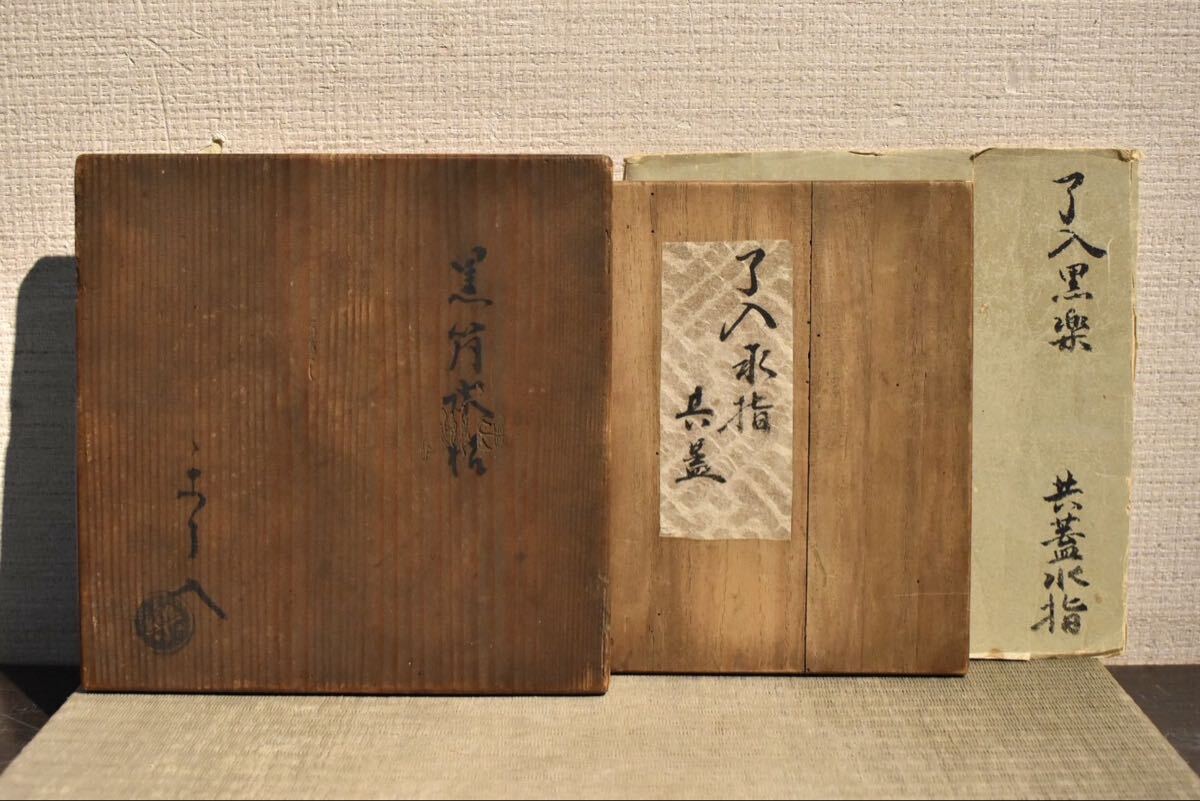 黒筒水指
了入
了入水指
共蓋
了入黒楽
共蓋水指